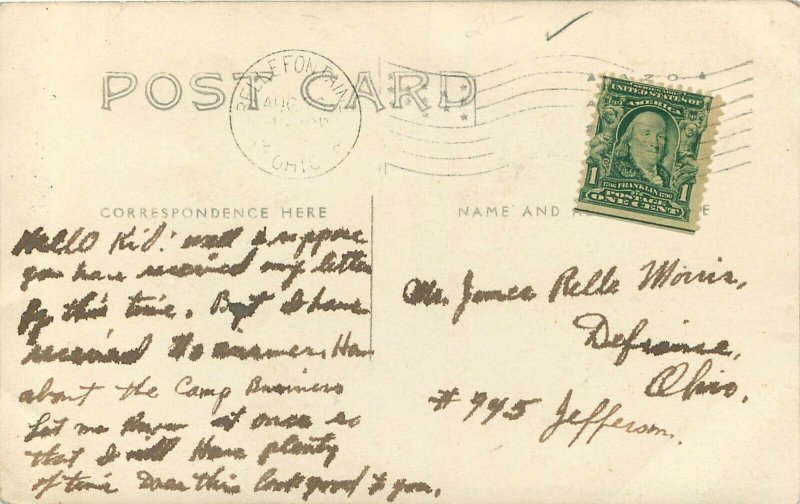 POST CARD
BELLEFONTAINE
AUG
OHIO
UNITED STATES OF
AMERICA
1 1
FRANKLIN
POSTAGE
ONE CENT
CORRESPONDENCE HERE
NAME AND A E
Hello Kid: well I suppose
you have received my letter
By this time. But I have
received No answer. How
about the Camp Business
Let me Know at once so
that I will Have plenty
of time Does this look good to you.
Mr. James Belle Morris,
Defiance,
Ohio.
# 945 Jefferson.